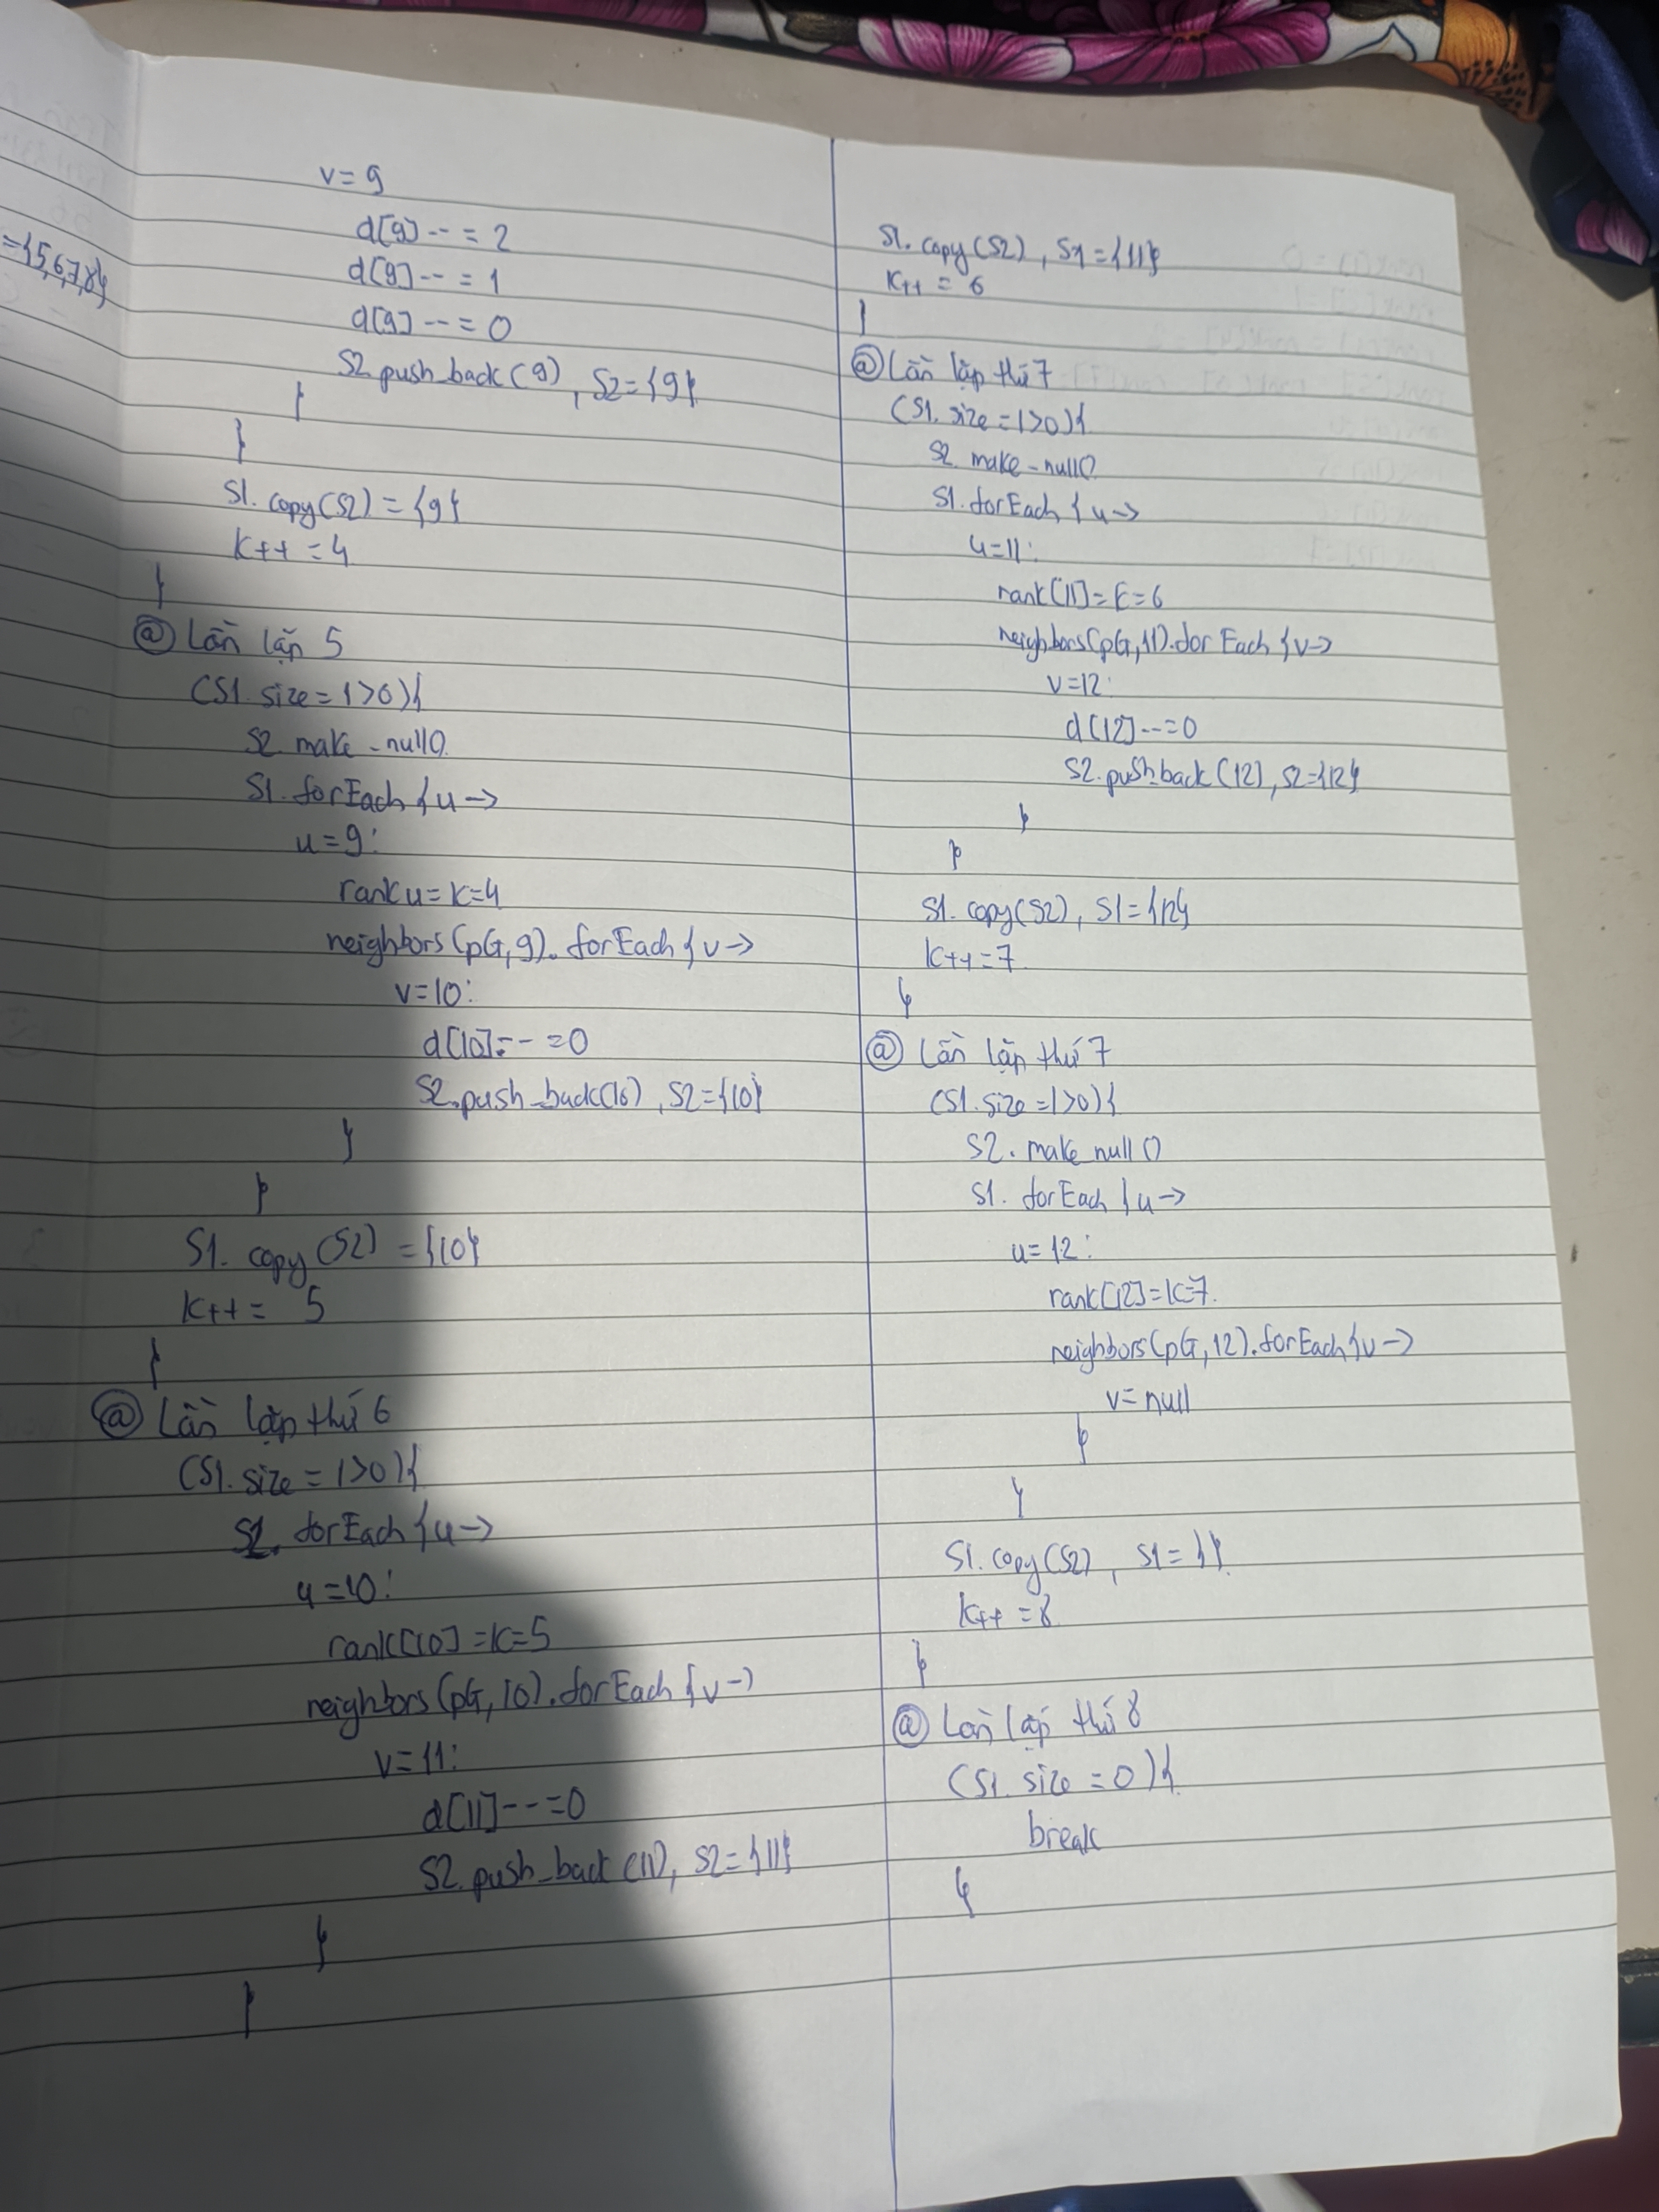 ={5,6,7,8}
v=9
d[9]--=2
d[9]--=1
d[9]--=0
S2.push_back(9), S2={9}
}
}
S1.copy(S2)={9}
k++=4
}
@ Lần lặp 5
(S1.size=1>0){
S2.make_null()
S1.forEach{u->
u=9:
rank u=k=4
neighbors(pG,9).forEach{v->
v=10:
d[10]--=0
S2.push_back(10), S2={10}
}
}
S1.copy(S2)={10}
k++= 5
}
@ Lần lặp thứ 6
(S1.size=1>0){
S1.forEach{u->
u=10:
rank[10]=k=5
neighbors(pG,10).forEach{v->
v=11:
d[11]--=0
S2.push_back(11), S2={11}
}
}
S1.copy(S2), S1={11}
k++=6
}
@ Lần lặp thứ 7
(S1.size=1>0){
S2.make_null()
S1.forEach{u->
u=11:
rank[11]=k=6
neighbors(pG,11).forEach{v->
v=12:
d[12]--=0
S2.push_back(12), S2={12}
}
}
S1.copy(S2), S1={12}
k++=7
}
@ Lần lặp thứ 7
(S1.size=1>0){
S2.make null()
S1.forEach{u->
u=12:
rank[12]=k=7
neighbors(pG,12).forEach{v->
v=null
}
}
S1.copy(S2), S1={}
k++=8
}
@ Lần lặp thứ 8
(S1.size=0){
break
}